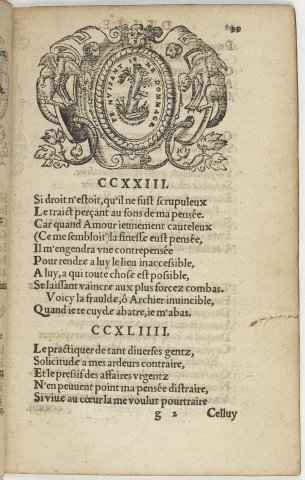 89
EN VISANT IE ME DOMMAGE
CCXXIII.
Si droit n'estoit, qu'il ne fust scrupuleux
Le traict perçant au fons de ma pensée.
Car quand Amour ieunement cauteleux
(Ce me sembloit) la finesse eust pensée,
Il m'engendra vne contrepensée
Pour rendre a luy le lieu inaccessible,
A luy, a qui toute chose est possible,
Se laissant vaincre aux plus forcez combas.
Voicy la fraulde, ô Archier inuincible,
Quand ie te cuyde abatre, ie m'abas.
CCXLIIII.
Le practiquer de tant diuerses gentz,
Solicitude a mes ardeurs contraire,
Et le pressif des affaires vrgentz
N'en peuuent point ma pensée distraire,
Si viue au cœur la me voulut pourtraire
g 2 Celluy